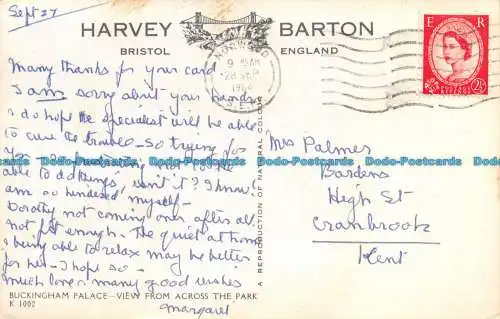 Sept 27
HARVEY BARTON
BRISTOL ENGLAND
NORWOOD
9 AM
28 SEP
1964
S.E.
E R
2½D
POSTAGE REVENUE
Many thanks for your card
I am sorry about your hands
I do hope the specialist will be able
to cure the trouble - so trying for
you - & frustrating not to be
able to do things, isn't it? I know!
am so hindered myself -
Dorothy not coming over after all.
not fit enough. The quiet at home
& being able to relax may be better
for her - I hope so -
Much love & many good wishes
Margaret
Mrs Palmer
Bardens
High St
Cranbrook
Kent
A REPRODUCTION OF NATURAL COLOUR
BUCKINGHAM PALACE—VIEW FROM ACROSS THE PARK
K 1002
Dodo-Postcards Dodo-Postcards Dodo-Postcards Dodo-Postcards Dodo-Postcards